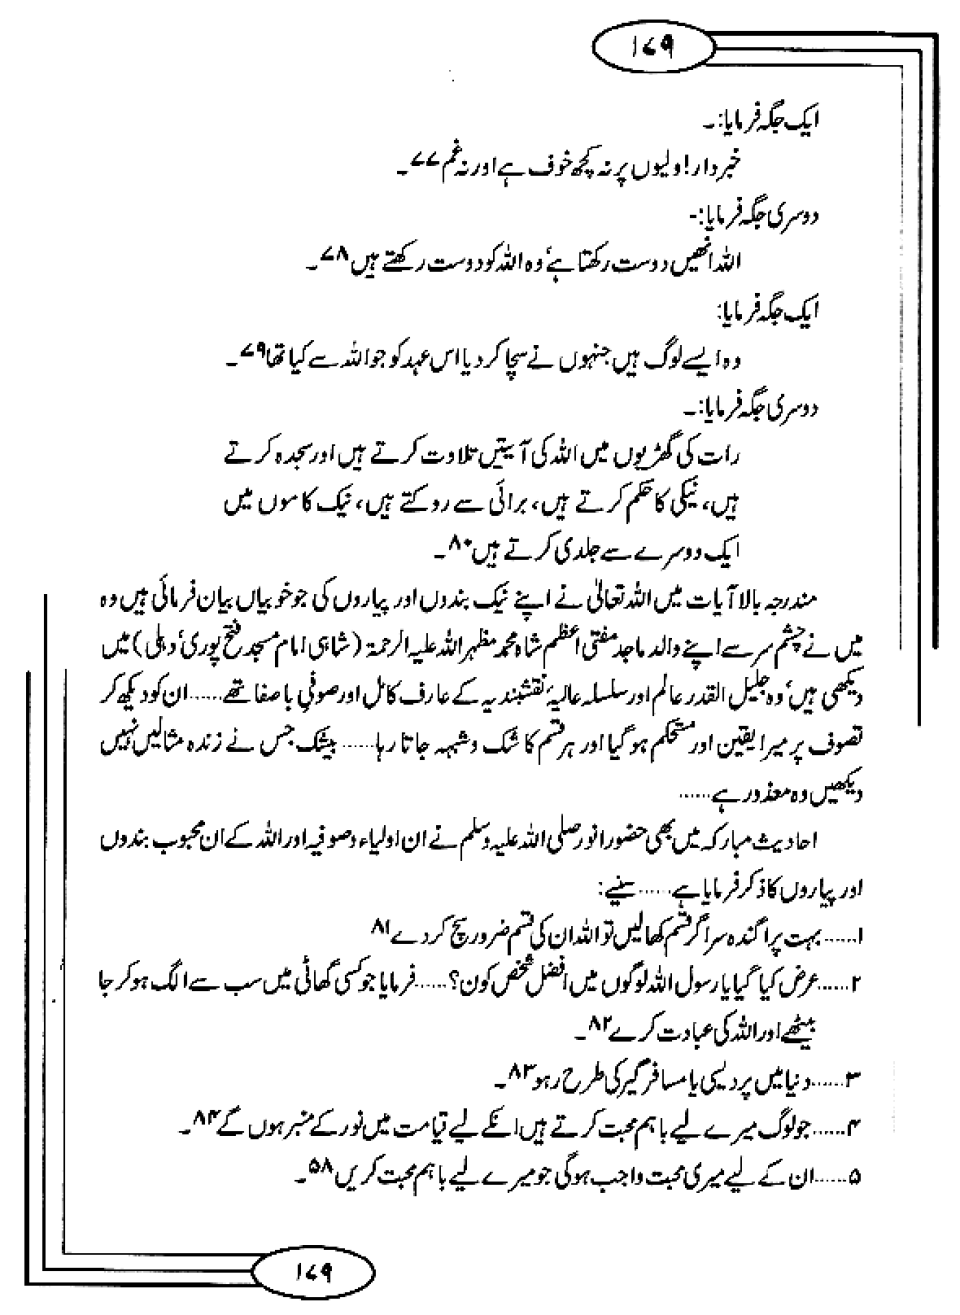 ۱۷۹
ایک جگہ فرمایا:۔
خبردار! ولیوں پر نہ کچھ خوف ہے اور نہ غم ۷۷۔
دوسری جگہ فرمایا:-
اللہ انھیں دوست رکھتا ہے، وہ اللہ کو دوست رکھتے ہیں ۷۸۔
ایک جگہ فرمایا:
وہ ایسے لوگ ہیں جنہوں نے سچا کر دیا اس عہد کو جو اللہ سے کیا تھا ۷۹۔
دوسری جگہ فرمایا:۔
رات کی گھڑیوں میں اللہ کی آیتیں تلاوت کرتے ہیں اور سجدہ کرتے
ہیں، نیکی کا حکم کرتے ہیں، برائی سے روکتے ہیں، نیک کاموں میں
ایک دوسرے سے جلدی کرتے ہیں ۸۰۔
مندرجہ بالا آیات میں اللہ تعالیٰ نے اپنے نیک بندوں اور پیاروں کی جو خوبیاں بیان فرمائی ہیں وہ
میں نے چشم سر سے اپنے والد ماجد مفتی اعظم شاہ محمد مظہر اللہ علیہ الرحمۃ (شاہی امام مسجد فتح پوری، دہلی) میں
دیکھی ہیں، وہ جلیل القدر عالم اور سلسلہ عالیۂ نقشبندیہ کے عارف کامل اور صوفیِ باصفا تھے...... ان کو دیکھ کر
تصوف پر میرا یقین اور مستحکم ہو گیا اور ہر قسم کا شک و شبہہ جاتا رہا...... بیشک جس نے زندہ مثالیں نہیں
دیکھیں وہ معذور ہے......
احادیث مبارکہ میں بھی حضور انور صلی اللہ علیہ وسلم نے ان اولیاء و صوفیہ اور اللہ کے ان محبوب بندوں
اور پیاروں کا ذکر فرمایا ہے...... سنیے:
۱...... بہت پراگندہ سر اگر قسم کھالیں تو اللہ ان کی قسم ضرور سچ کر دے ۸۱
۲...... عرض کیا گیا یا رسول اللہ لوگوں میں افضل شخص کون؟...... فرمایا جو کسی گھاٹی میں سب سے الگ ہو کر جا
بیٹھے اور اللہ کی عبادت کرے ۸۲۔
۳...... دنیا میں پردیسی یا مسافر گیر کی طرح رہو ۸۳۔
۴...... جو لوگ میرے لیے باہم محبت کرتے ہیں انکے لیے قیامت میں نور کے منبر ہوں گے ۸۴۔
۵...... ان کے لیے میری محبت واجب ہوگی جو میرے لیے باہم محبت کریں ۵۸۔
۱۷۹